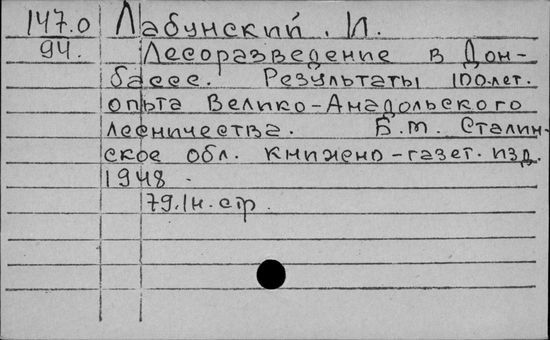 147.0 Лабунский. И.
94. Лесоразведение в Дон-
бассе. Результаты 100-лет.
опыта Велико-Анадольского
лесничества. Б.м. Сталин-
ское обл. книжено-газет. изд.
1948.
79.1н. стр.